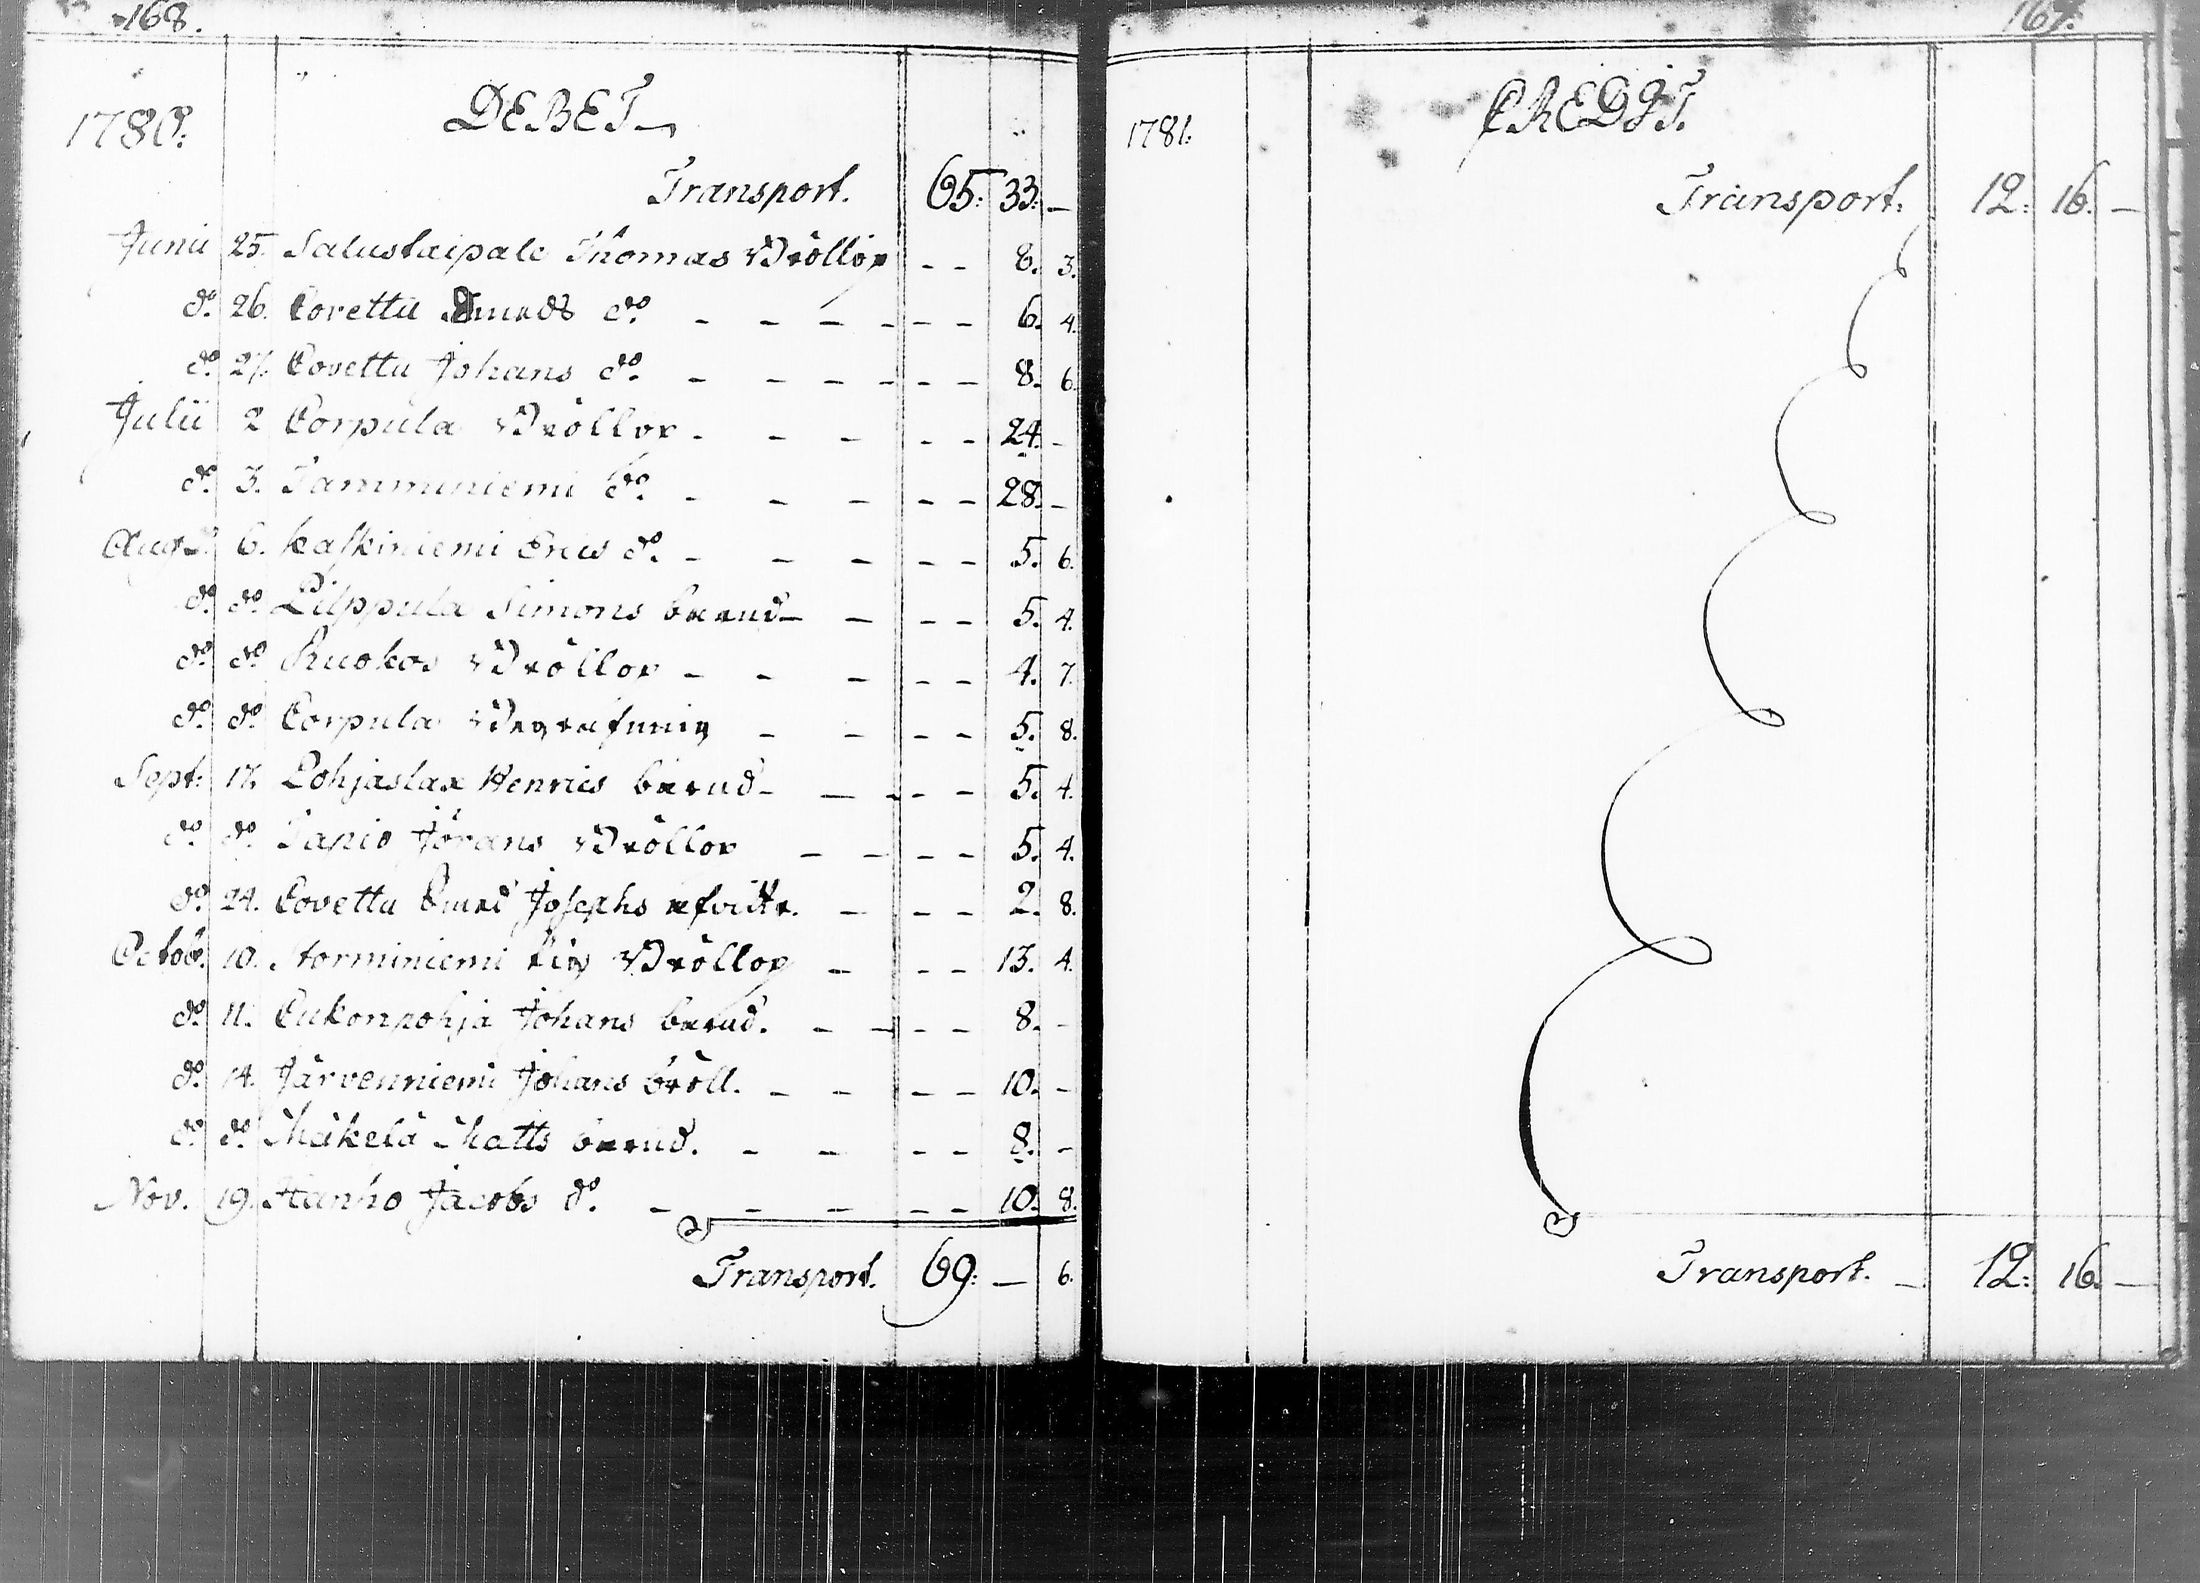 168.
1780. DEBET
Transport. 65. 33. —
Junii 25. Salustaipale Thomas Bröllop - - 8. 3.
do. 26. Corettu do - - - - - - 6. 4.
do. 27. Corettu Johans do. - - - - - - 8. 6.
Julii 2 Corpula Bröllop - - - - - 24. -
do. 3. Tamminiemi do. - - - - - 28. -
Aug. 6. Kaskiniemi Erics do. - - - - - 5. 6.
do. do. Pilppula Simons barnd - - - - 5. 4.
do. do. Ruokos Bröllop - - - - - 4. 7.
do. do. Corpula Begrafning - - - - 5. 8.
Sept: 17. Pohjaslax Henrics barnd - - - - 5. 4.
do. do. Tapio Jörans Bröllop - - - - 5. 4.
do. 24. Corettu Josephs - - - 2. 8.
Octob. 10. Storminiemi Bröllop - - - 13. 4.
do. 11. Cukonpohja Johans barnd. - - - - 8. -
do. 14. Järvenniemi Johans bröll. - - - - 10. -
do. do. Mäkelä Matts barnd. - - - - 8. -
Nov. 19. Hanho Jacobs do. - - - - - 10. 8.
Transport. 69. — 6.
1781. CREDIT.
Transport. 12. 16. —
Transport. — 12. 16. —